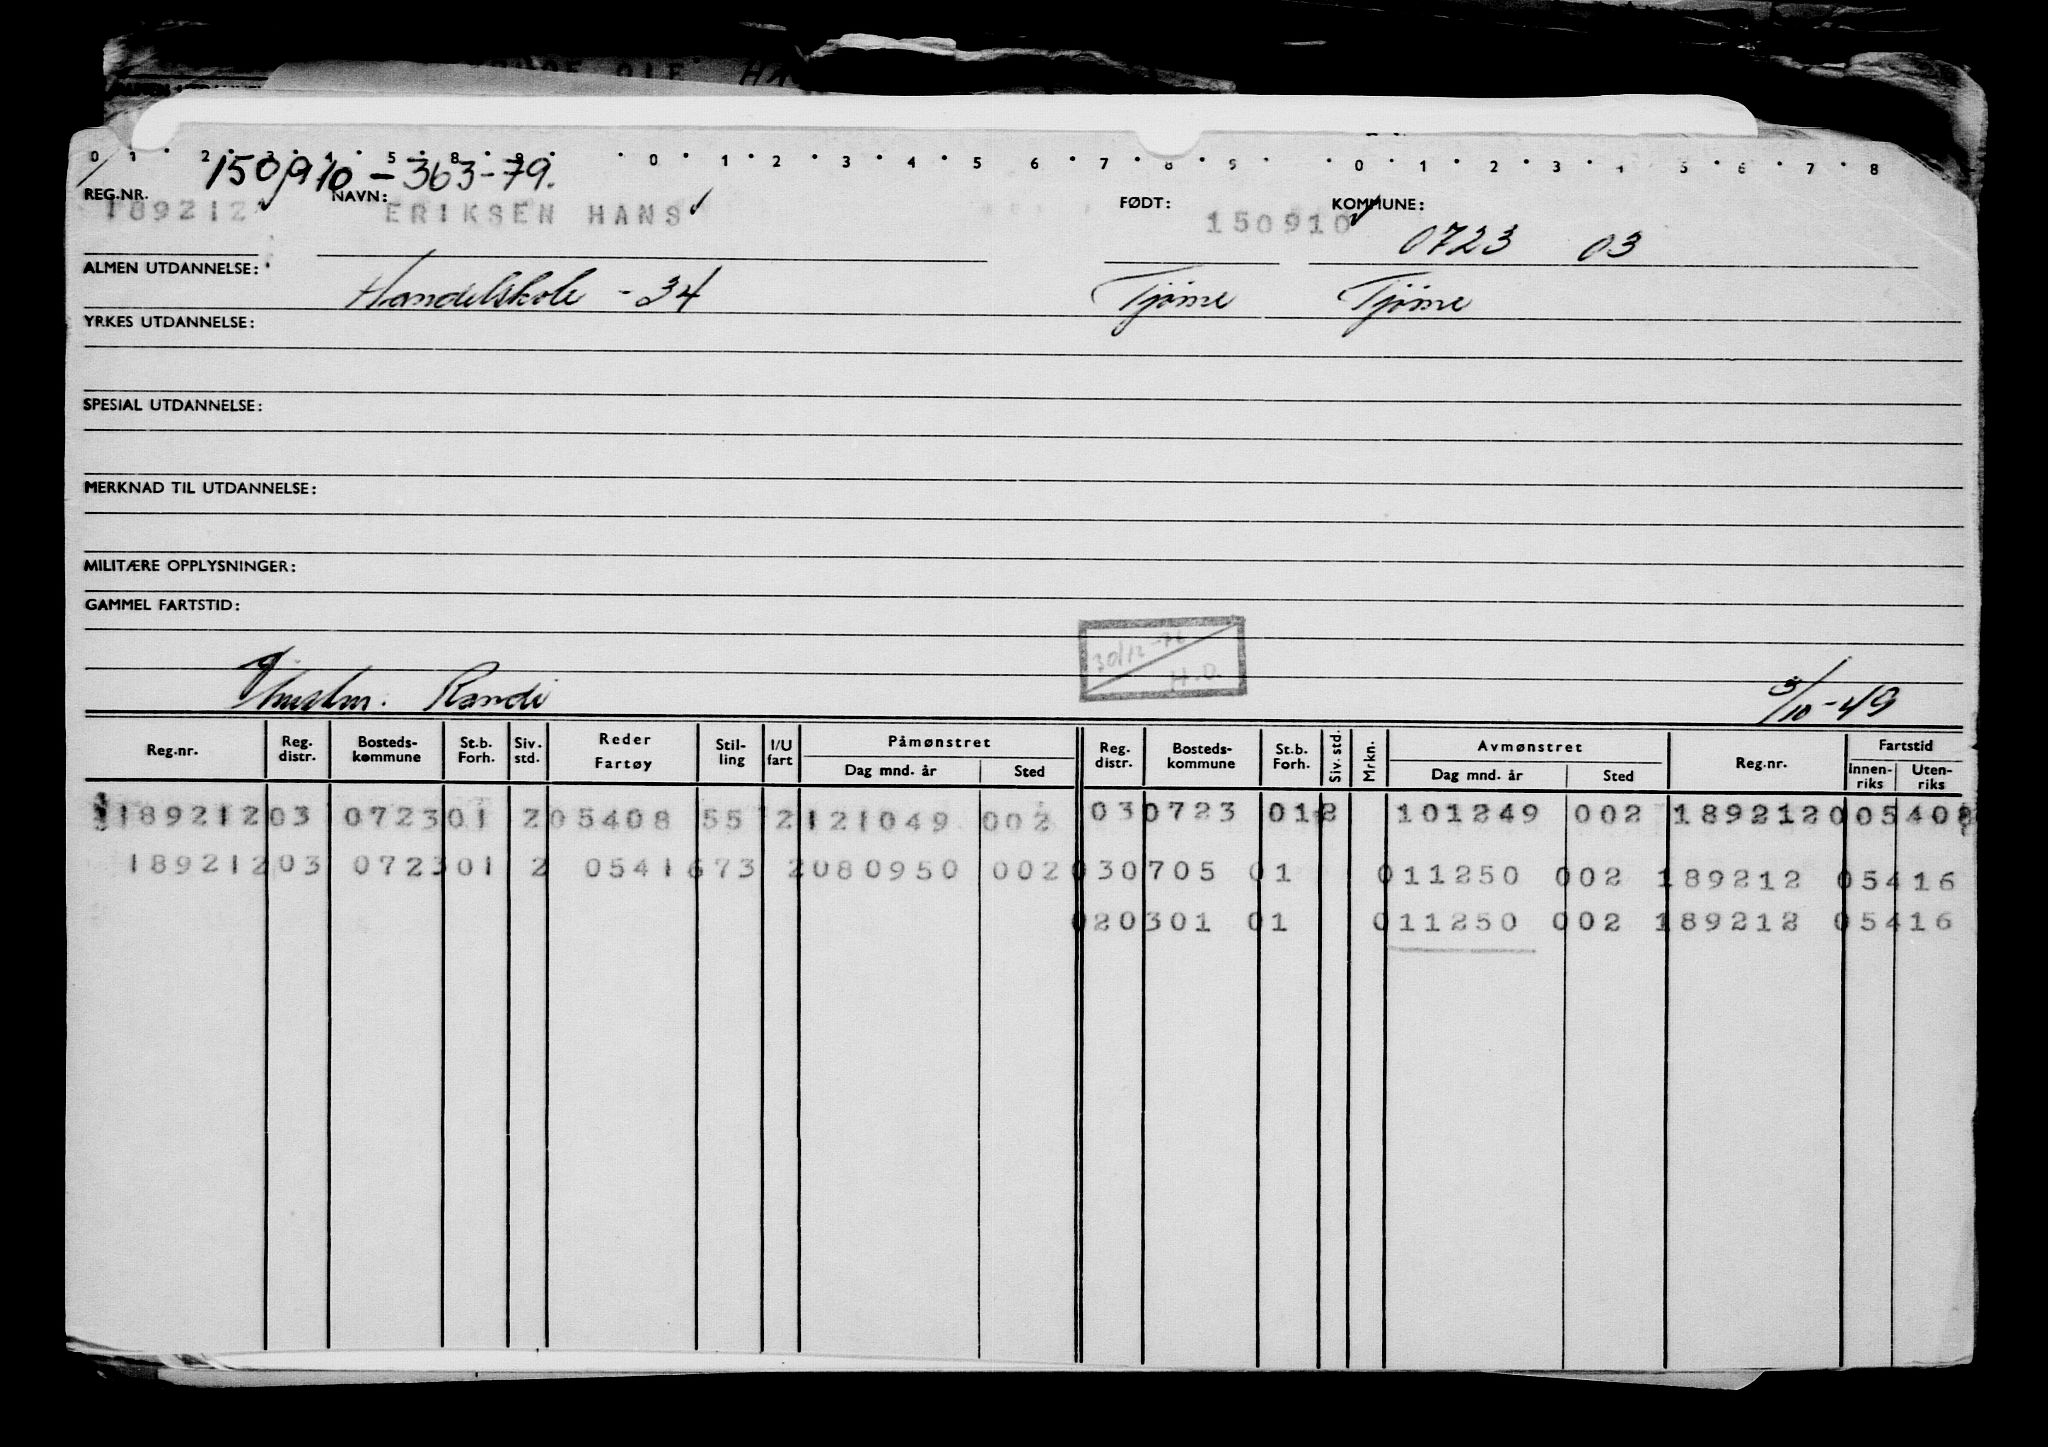 150910-363-79.
REG.NR. NAVN: FØDT: KOMMUNE:
189212 ERIKSEN HANS 150910 0723 03
ALMEN UTDANNELSE: Handelskole - 34 Tjöme Tjöme
YRKES UTDANNELSE:
SPESIAL UTDANNELSE:
MERKNAD TIL UTDANNELSE:
MILITÆRE OPPLYSNINGER:
GAMMEL FARTSTID:
30/12 H.O.
Randi 3/10-49
Reg.nr. Reg. distr. Bosteds-kommune St.b. Forh. Siv. std. Reder Fartøy Stil-ling I/U fart Påmønstret Dag mnd. år Sted Reg. distr. Bosteds-kommune St.b. Forh. Siv. std. Mrkn. Avmønstret Dag mnd. år Sted Reg.nr. Fartstid Innen-riks Uten-riks
189212 03 0723 01 2 05408 55 2 121049 002 03 0723 01 2 101249 002 189212 005408
189212 03 0723 01 2 05416 73 2 080950 002 03 0705 01 011250 002 189212 05416
02 0301 01 011250 002 189212 05416